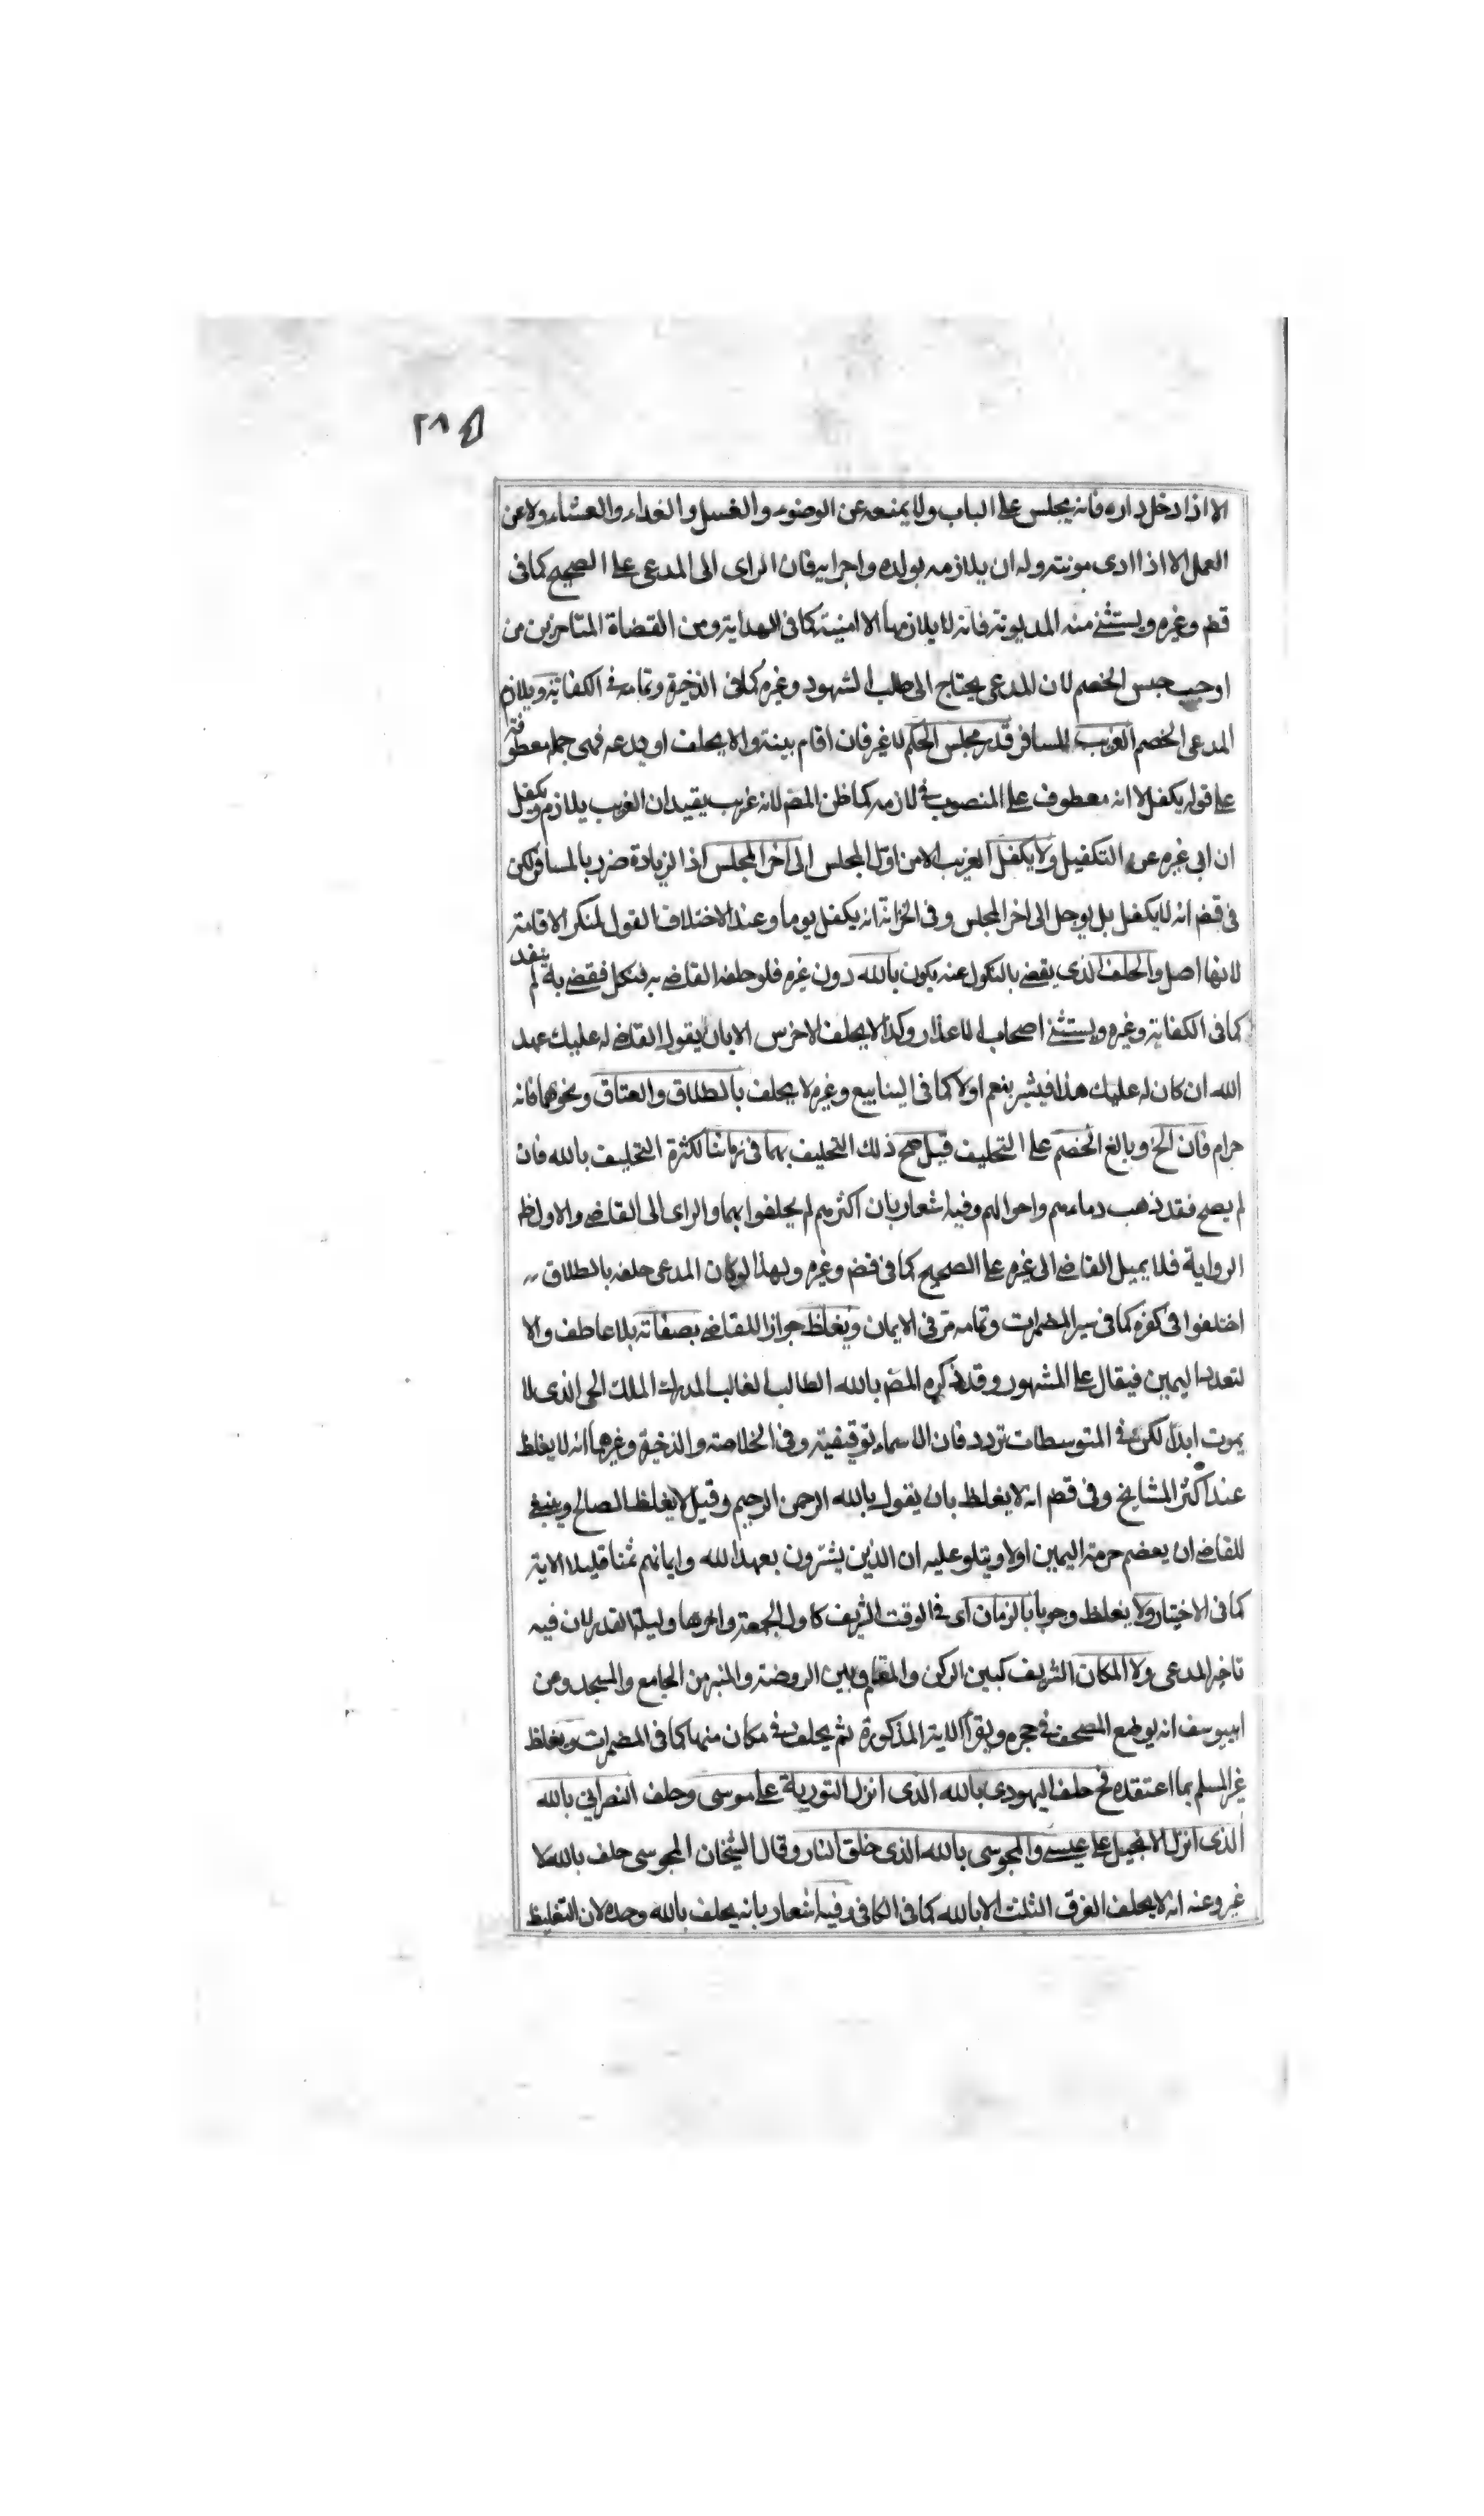 ٢٨٥
الا اذا دخل داره فانه يجلس على الباب ولا يمنعه عن الوضوء والغسل والغداء والعشاء ولا عن
العمل الا اذا ادى مونته وله ان يلازمه بولده واجرايه فان الراى الى المدعى على الصحيح كما فى
قضـ وغيره ويستثنى منه المديونة فانه لا يلازمها الا امنية كما فى الهداية ومن القضاة المتاخرين من
اوجب حبس الخصم لان المدعى يحتاج الى طلب الشهود وغيره كما فى الذخيرة وتمامه فى الكفاية ويلازم
المدعى الخصم الغريب المسافر قدر مجلس الحكم لا غير فان اقام بينة والا يحلف او يدعه فهى جملة معطوفة
على قوله يكفل لا انه معطوف على المنصوب فى لازمه كما ظن المصـ لانه غريب يقيد ان الغريب يلازم ويكفل
ان ابى غيره عن التكفيل ولا يكفل الغريب الا من اول المجلس الى اخر المجلس اذ الزيادة ضرر بالمسافر لكن
فى قضـ انه لا يكفل بل يوجل الى اخر المجلس وفى الخزانة انه يكفل يوما وعند الاختلاف القول لمنكر الاقامة
لانها اصل والحلف الذى يقضى بالنكول عنه يكون بالله دون غيره فلو حلفه القاضى به فنكل فقضى به لم ينفد
كما فى الكفاية وغيره ويستثنى اصحاب الاعذار وكذا لا يحلف الاخرس الا بان يقول القاضى له عليك عهد
الله ان كان له عليك هذا فيشير بنعم او لا كما فى الينابيع وغيره لا يحلف بالطلاق والعتاق ونحوهما فانه
حرام فان الخ وبالغ الخصم على التحليف قيل صح ذلك التحليف بهما فى زماننا لكثرة التحليف بالله فان
لم يصح فقد ذهب دماءهم واحوالهم وفيه اشعار بان اكثرهم لم يحلفوا بهما والراى الى القاضى والاول ظـ
الرواية فلا يميل القاضى الى غيره على الصحيح كما فى قضـ وغيره ولهذا لو كان المدعى حلفه بالطلاق
اختلفوا فى كفره كما فى سير المضمرات وتمامه مر فى الايمان ويغلظ جوازا للقاضى بصفاته بلا عاطف والا
لتعدد اليمين فيقال على المشهور وقد ذكره المصـ بالله الطالب الغالب المدرك الملك الحى الذى لا
يموت ابدا لكن فى المتوسطات تردد فان الاسماء توقيفية وفى الخلاصة والذخيرة وغيرهما انه لا يغلظ
عند اكثر المشايخ وفى قضـ انه لا يغلظ بان يقول بالله الرحمن الرحيم وقيل لا يغلظ الصالح وينبغى
للقاضى ان يعضم حرمة اليمين اولا ويتلو عليه ان الذين يشترون بعهد الله وايمانهم ثمنا قليلا الاية
كما فى الاختيار ولا يغلظ وجوبا بالزمان اى فى الوقت الشريف كاول الجمعة واخرها وليلة القدر لان فيه
تاخير المدعى ولا المكان الشريف كبين الركن والمقام وبين الروضة والمنبر من الجامع والمسجد وعن
ابيوسف انه يوضع المصحف فى حجره ويقرأ الاية المذكورة ثم يحلف فى مكان منها كما فى المضمرات ويغلظ
غير المسلم بما اعتقده فح حلف اليهودى بالله الذى انزل التورية على موسى وحلف النصرانى بالله
الذى انزل الانجيل على عيسى والمجوسى بالله الذى خلق النار وقال الشيخان المجوسى حلف بالله لا
غير وعنه انه لا يحلف الفرق الثلث الا بالله كما فى الكافى وفيه اشعار بانه يحلف بالله وحده لان التغليظ